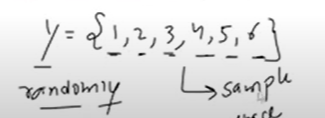 y = {1, 2, 3, 4, 5, 6}
randomly
↳ sample